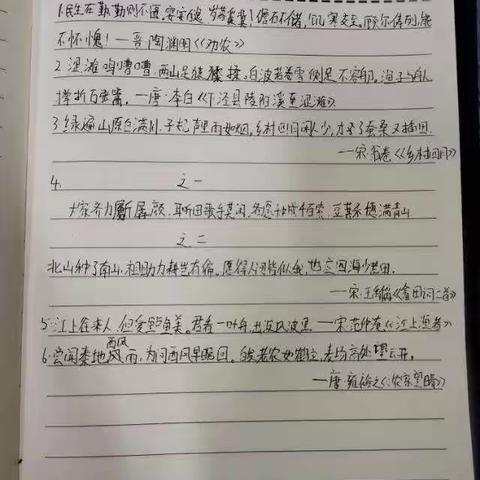 1.民生在勤,勤则不匮,宴安自逸,岁暮奚冀!儋石不储,饥寒交至,顾尔俦列,能
不怀愧! —晋·陶渊明《劝农》
2.涩滩鸣嘈嘈,两山足猿猱,白波若卷雪,侧足不容舠,渔子与舟人
撑折万张篙。 —唐·李白《下泾县陵阳溪至涩滩》
3.绿遍山原白满川,子规声里雨如烟,乡村四月闲人少,才了蚕桑又插田。
—宋·翁卷《乡村四月》
4. 之一
大家齐力斸孱颜,耳听田歌手莫闲,各愿种成千百索,豆萁禾穗满青山
之二
北山种了种南山,相助力耕岂有偏,愿得人间皆似我,也应四海少荒田。
—宋·王禹偁《畲田词二首》
5.江上往来人,但爱鲈鱼美,君看一叶舟,出没风波里 —宋·范仲淹《江上渔者》
6.尝闻秦地西风雨,为问西风早晚回。白发老农如鹤立,麦场高处望云开。
—唐·雍裕之《农家望晴》